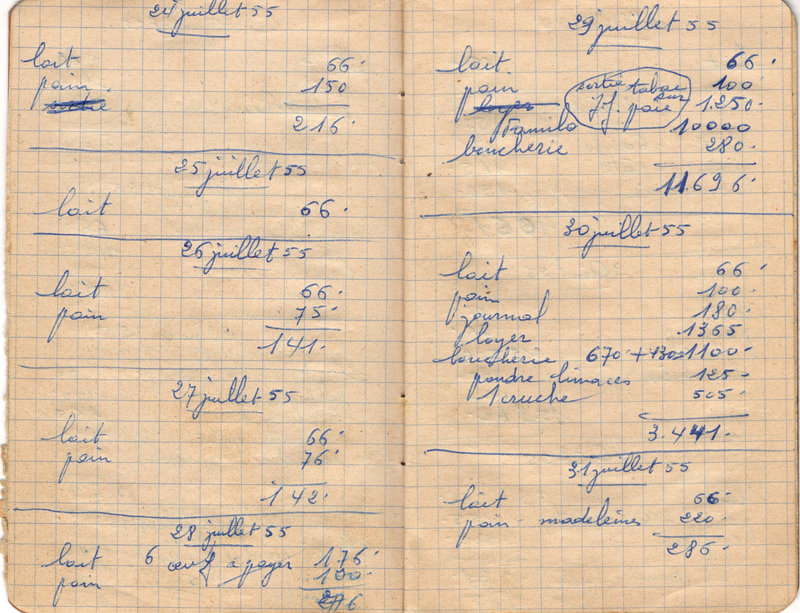 24 juillet 55
lait 66
pain 150
sortie
216
25 juillet 55
lait 66
26 juillet 55
lait 66
pain 75
141
27 juillet 55
lait 66
pain 76
142
28 juillet 55
lait 6 œufs à payer 176
pain 100
276
29 juillet 55
lait 66
pain 100
loyer sortie tabac J.J. sur paie 1.250
Familo 10000
boucherie 280
11.696
30 juillet 55
lait 66
pain 100
journal 180
loyer 1365
boucherie 670 + 430 1100
poudre limaces 125
1 cruche 505
3.441
31 juillet 55
lait 66
pain - madeleines 220
286